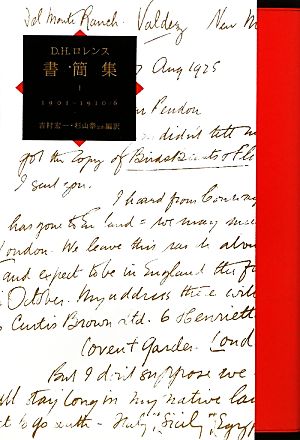 Del Monte Ranch. Valdez New M
D.H.ロレンス
書簡集
I
1901~1910/6
吉村宏一・杉山泰 編訳
Aug 1925
Pendon
didn't tell m
got the copy of Birds Beasts & Flo
I sent you.
I heard from
has gone to England = we may
London. We leave this
and expect to be in England the fi
October. My address there will
Curtis Brown Ltd. 6 Henriett
Covent Garden. Lond
But I don't suppose we
stay long in my native la
to go south - Italy, Sicily, Egyp